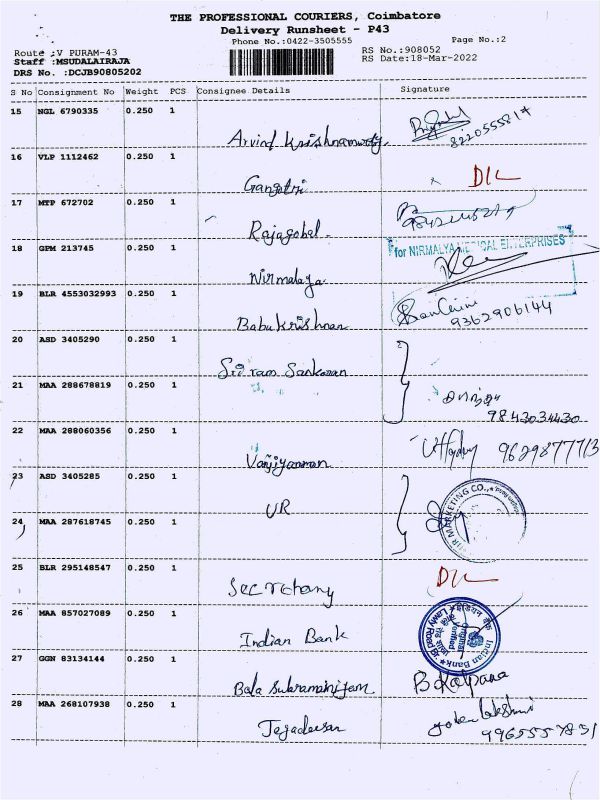 THE PROFESSIONAL COURIERS, Coimbatore
Delivery Runsheet - P43
Phone No.:0422-3505555
Page No.:2
Route :V PURAM-43
Staff :MSUDALAIRAJA
DRS No. :DCJB90805202
RS No.:908052
RS Date:18-Mar-2022
S No Consignment No Weight PCS Consignee Details Signature
15 NGL 6790335 0.250 1
Arvind Krishnamurthy
16 VLP 1112462 0.250 1
Gangotri D/L
17 MTP 672702 0.250 1
Rajagobal
18 GPM 213745 0.250 1
for NIRMALYA MEDICAL ENTERPRISES
Nirmalaya
19 BLR 4553032993 0.250 1
Babu Krishnan 9362906144
20 ASD 3405290 0.250 1
Sri ram Sankaran
21 MAA 288678819 0.250 1
9843034430
22 MAA 288060356 0.250 1
Vanjiyamman
23 ASD 3405285 0.250 1
UR MARKETING CO.,
24 MAA 287618745 0.250 1
25 BLR 295148547 0.250 1
Secretary D/L
26 MAA 857027089 0.250 1
Indian Bank
27 GGN 83134144 0.250 1
Bala Subramaniyam B Kalpana
28 MAA 268107938 0.250 1
Jegadeesan